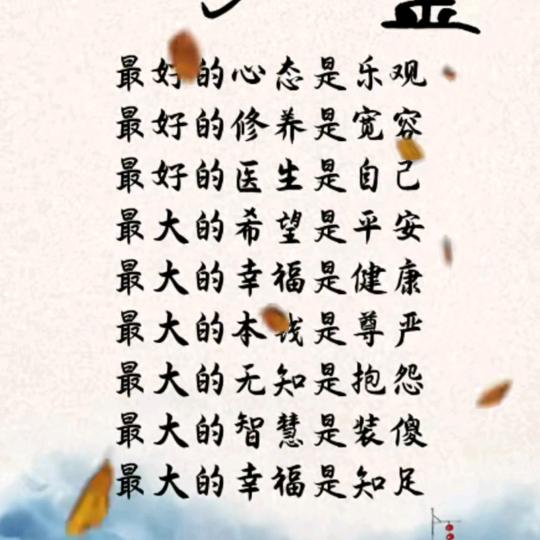 最好的心态是乐观
最好的修养是宽容
最好的医生是自己
最大的希望是平安
最大的幸福是健康
最大的本钱是尊严
最大的无知是抱怨
最大的智慧是装傻
最大的幸福是知足